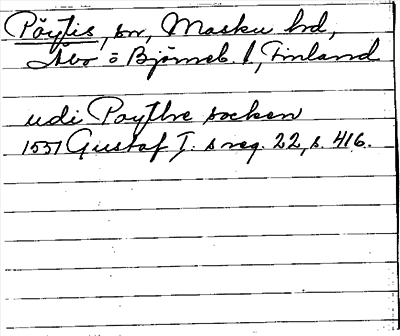 Pöytis, sn, Masku hd,
Åbo o Björneb. l, Finland
udi Poythre socken
1551 Gustaf I. s reg. 22, s. 416.